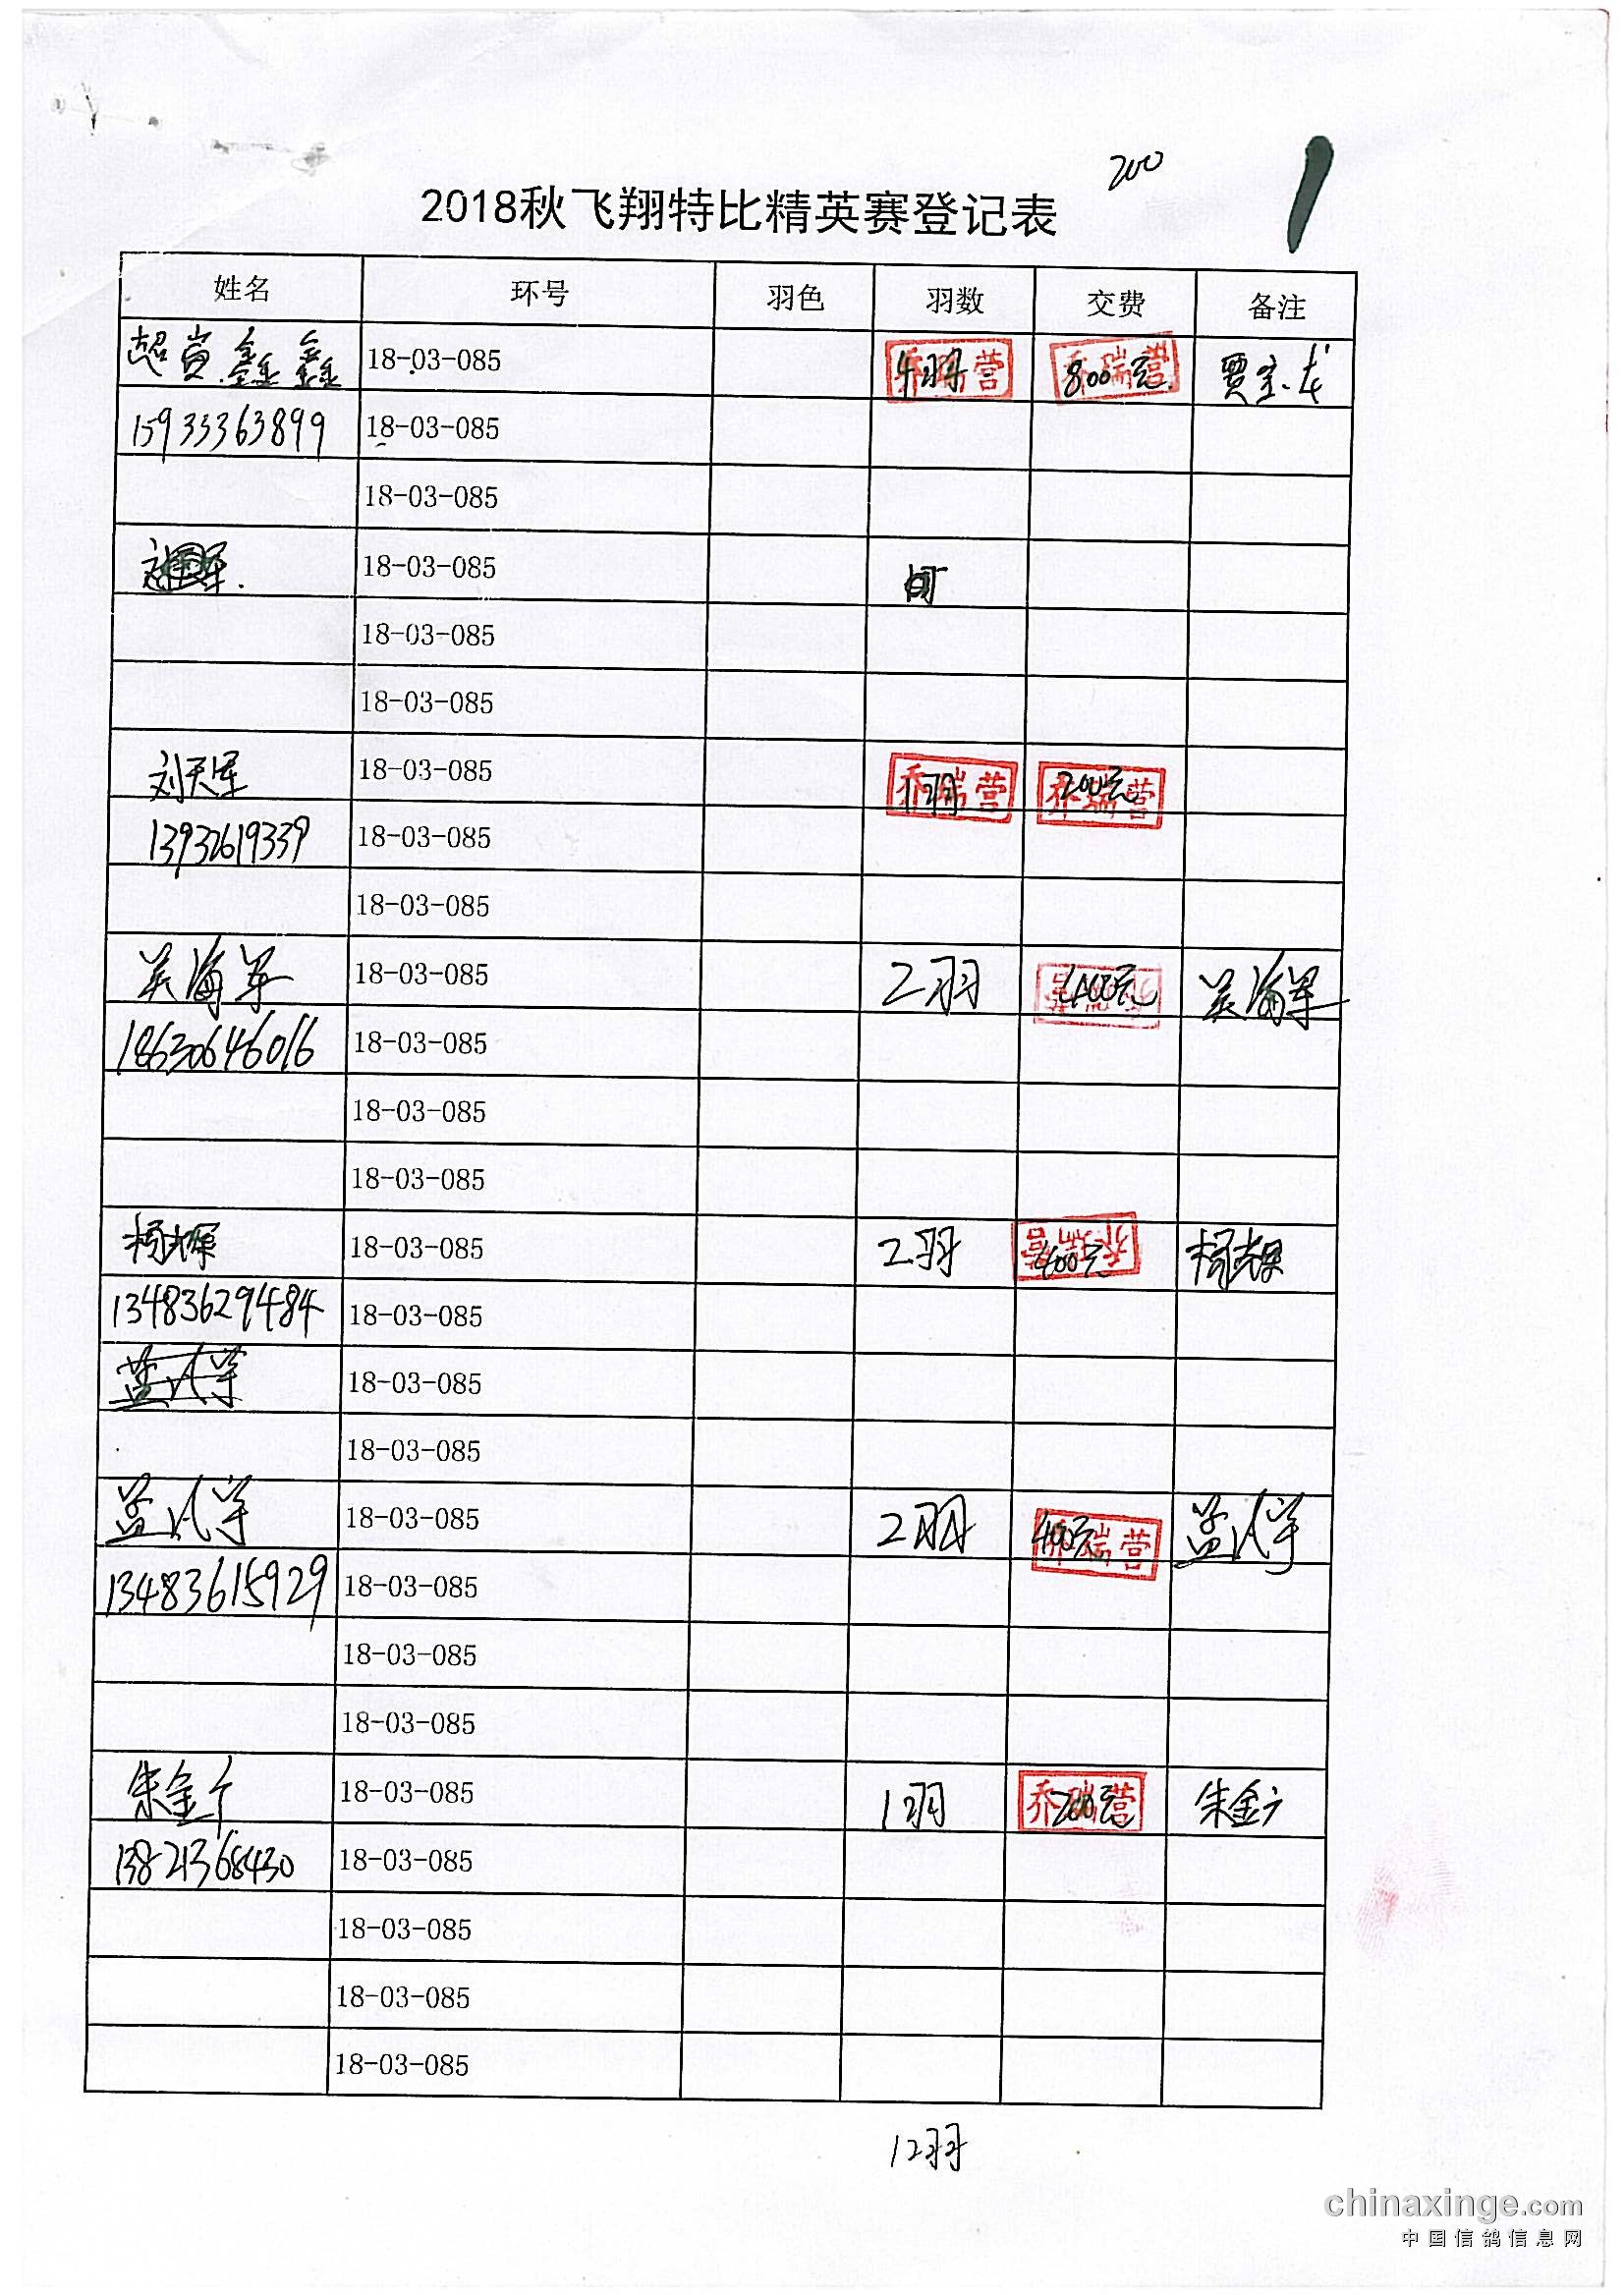 200
2018秋飞翔特比精英赛登记表
姓名 环号 羽色 羽数 交费 备注
超赏.鑫鑫 18-03-085 4羽 乔瑞营 800元. 乔瑞营 贾宝龙
15933363899 18-03-085
18-03-085
18-03-085
18-03-085
18-03-085
刘天军 18-03-085 1羽 乔瑞营 200元 乔瑞营
13932619339 18-03-085
18-03-085
吴海军 18-03-085 2羽 400元 乔瑞营 吴海军
18630646016 18-03-085
18-03-085
18-03-085
18-03-085 2羽 400元 乔瑞营
13483629484 18-03-085
18-03-085
18-03-085
18-03-085 2羽 400元 乔瑞营
13483615929 18-03-085
18-03-085
18-03-085
朱金广 18-03-085 1羽 200元 乔瑞营 朱金广
13821368430 18-03-085
18-03-085
18-03-085
18-03-085
12羽
chinaxinge.com
中国信鸽信息网